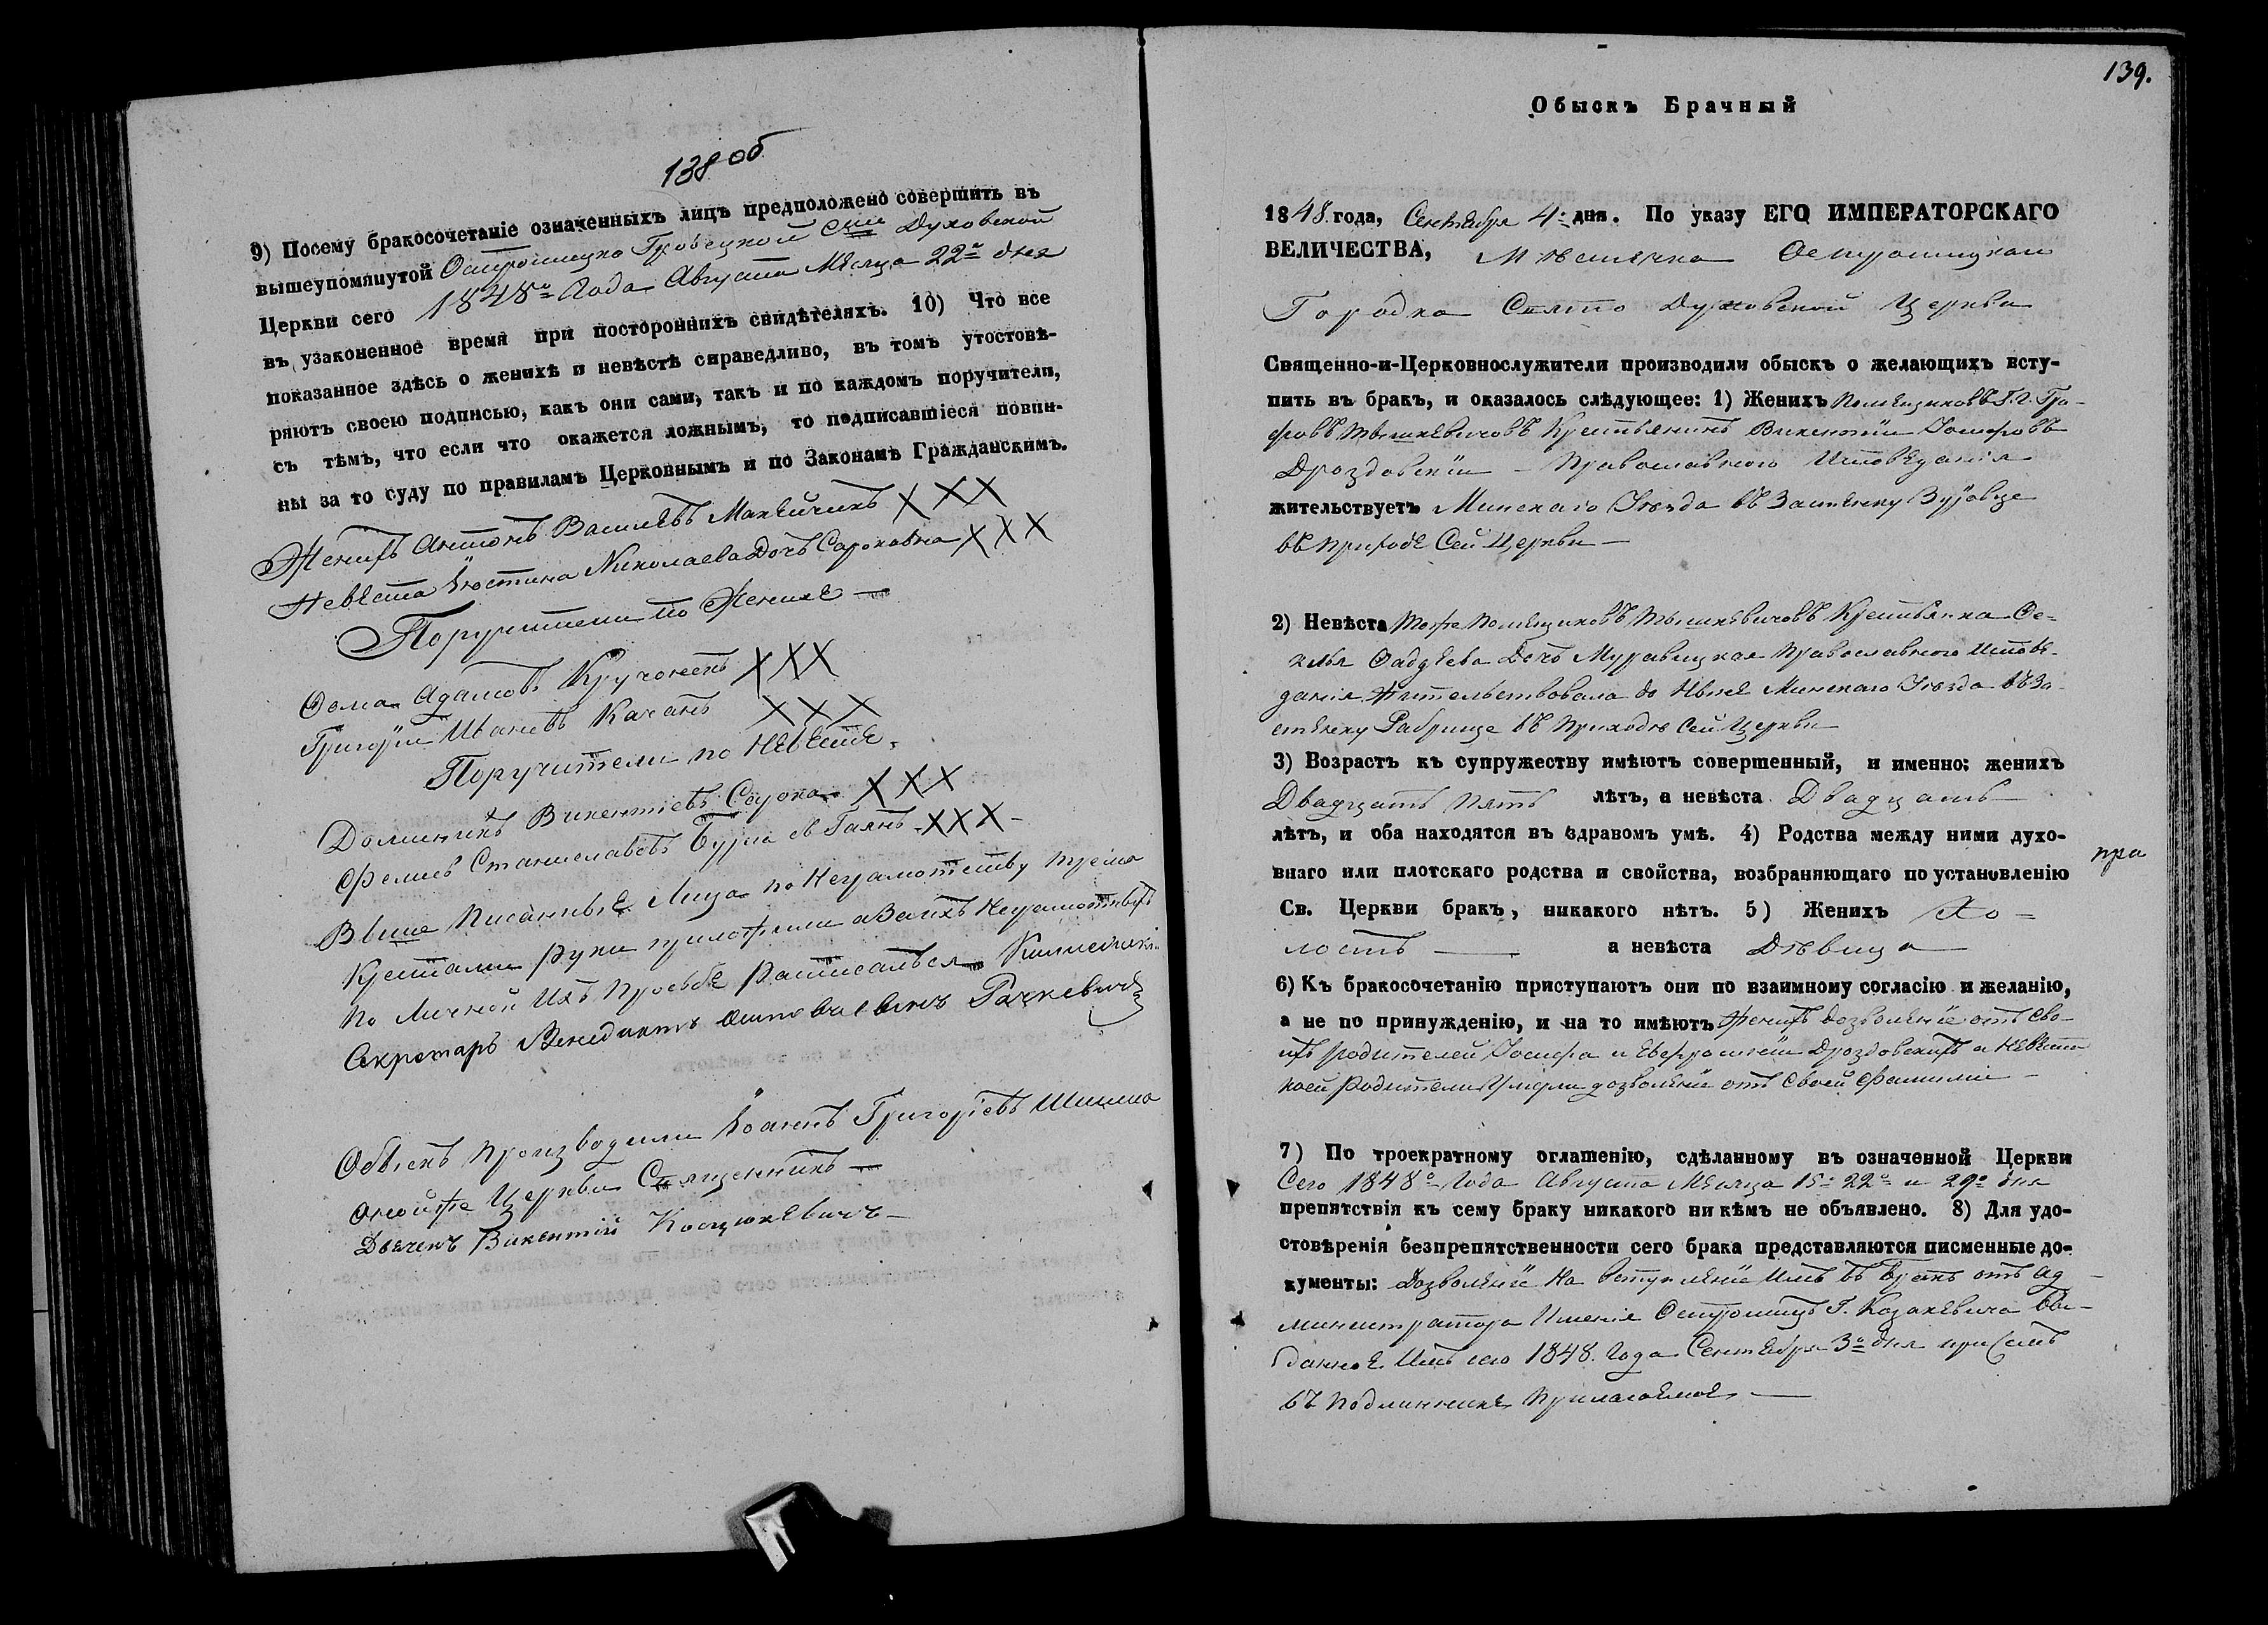 138 об
9) Посему бракосочетаніе означенныхъ лицъ предположено совершить въ
вышеупомянутой Остро­шицко Городецкой Свто Духовской
Церкви сего 1848го Года Августа Месяца 22го дня
въ узаконенное время при постороннихъ свидѣтеляхъ. 10) Что все
показанное здѣсь о женихѣ и невѣстѣ справедливо, въ томъ утостовѣ-
ряютъ своею подписью, какъ они сами, такъ и по каждомъ поручители,
съ тѣмъ, что если что окажется ложнымъ, то подписавшіеся повин-
ны за то суду по правиламъ Церковнымъ и по Законамъ Гражданскимъ.
Женихъ Антонъ Васильевъ XXX
Невеста Іюстина Николаева Дочь Сороковна XXX
Поручители по Женихе
Фома Адамовъ XXX
Григорій Ивановъ Качанъ XXX
Поручители по Невесте
Доминикъ Викентіевъ Сорока XXX
Станиславовъ XXX
Выше Писанные Лица по Неграмотству тремя
Крестами руки приложили а За ихъ Неграмотныхъ
по Личной Ихъ Просьбе Росписался
Секретарь Венедиктъ Рачкевичъ
Обыскъ Производили Іоаннъ Григоріевъ
оной же Церкви Священникъ
Дьячекъ Викентій Костюкевичъ
139.
Обыскъ Брачный
1848. года, Сентября 4. дня. По указу ЕГО ИМПЕРАТОРСКАГО
ВЕЛИЧЕСТВА, Местечка Острошицкаго
Городка Свято Духовской Церкви
Священно-и-Церковнослужители производили обыскъ о желающихъ всту-
пить въ бракъ, и оказалось слѣдующее: 1) Женихъ Помещиковъ Г. Г. Гра-
фовъ Тышкевичовъ Крестьянинъ Викентій Іосифовъ
Дроздовскій Православного Исповеданія
жительствуетъ Минскаго Уезда въ Застенку
въ приходе Сей Церкви
2) Невѣста Техже Помещиковъ Тышкевичовъ Крестьянка Фе-
Фадеева Дочь Муравицкая Православного Испове-
данія Жительствовала до Ныне Минскаго Уезда въ За-
стенку въ Приходе Сей Церкви
3) Возрастъ къ супружеству имѣютъ совершенный, и именно: женихъ
Двадцать Пять лѣтъ, а невѣста Двадцать
лѣтъ, и оба находятся въ здравомъ умѣ. 4) Родства между ними духо-
внаго или плотскаго родства и свойства, возбраняющаго по установленію
пра
Св. Церкви бракъ, никакого нѣтъ. 5) Женихъ Хо-
лостъ а невѣста Девица
6) Къ бракосочетанію приступаютъ они по взаимному согласію и желанію,
а не по принужденію, и на то имѣютъ Женихъ дозволеніе отъ Сво-
ихъ родителей Іосифа и Евфросиніи Дроздовскихъ а Невеста
коей родители Умерли дозволеніе отъ Своей Фамиліи
7) По троекратному оглашенію, сдѣланному въ означенной Церкви
Сего 1848го Года Августа Месяца 15. 22 и 29го дня
препятствія къ сему браку никакого ни кѣмъ не объявлено. 8) Для удо-
стовѣренія безпрепятственности сего брака представляются писменные до-
кументы: Дозволеніе На вступленіе Имъ въ бракъ отъ ад-
министратора Именія Острошицъ Г. Козакевича Вы-
данное Имъ сего 1848. Года Сентября 3го дня при семъ
въ подлиннике прилагаемое